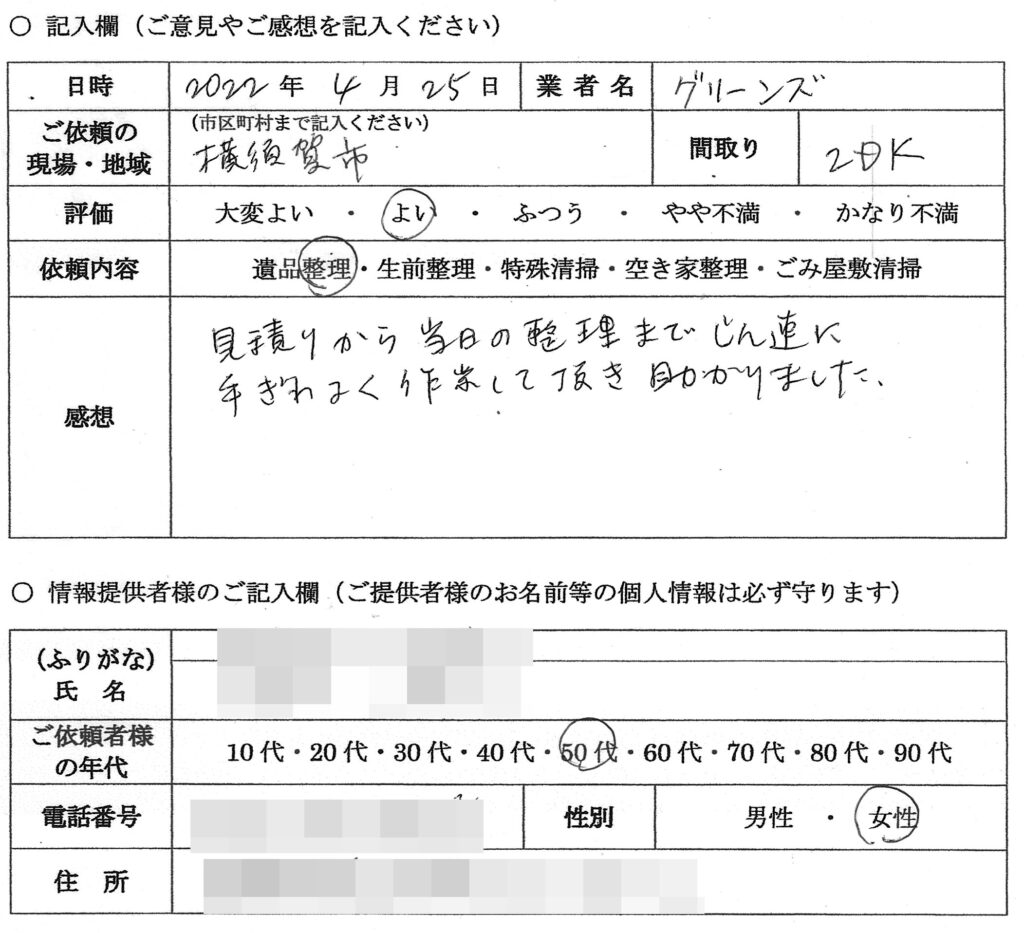 ○ 記入欄（ご意見やご感想を記入ください）
日時 2022年 4月 25日 業者名 グリーンズ
ご依頼の現場・地域 (市区町村まで記入ください) 横須賀市 間取り 2DK
評価 大変よい ・ よい ・ ふつう ・ やや不満 ・ かなり不満
依頼内容 遺品整理・生前整理・特殊清掃・空き家整理・ごみ屋敷清掃
感想
見積りから当日の整理までじん連に
手ぎわよく作業して頂き助かかりました、
○ 情報提供者様のご記入欄（ご提供者様のお名前等の個人情報は必ず守ります）
（ふりがな）
氏 名
ご依頼者様の年代 10代・20代・30代・40代・50代・60代・70代・80代・90代
電話番号 性別 男性 ・ 女性
住 所